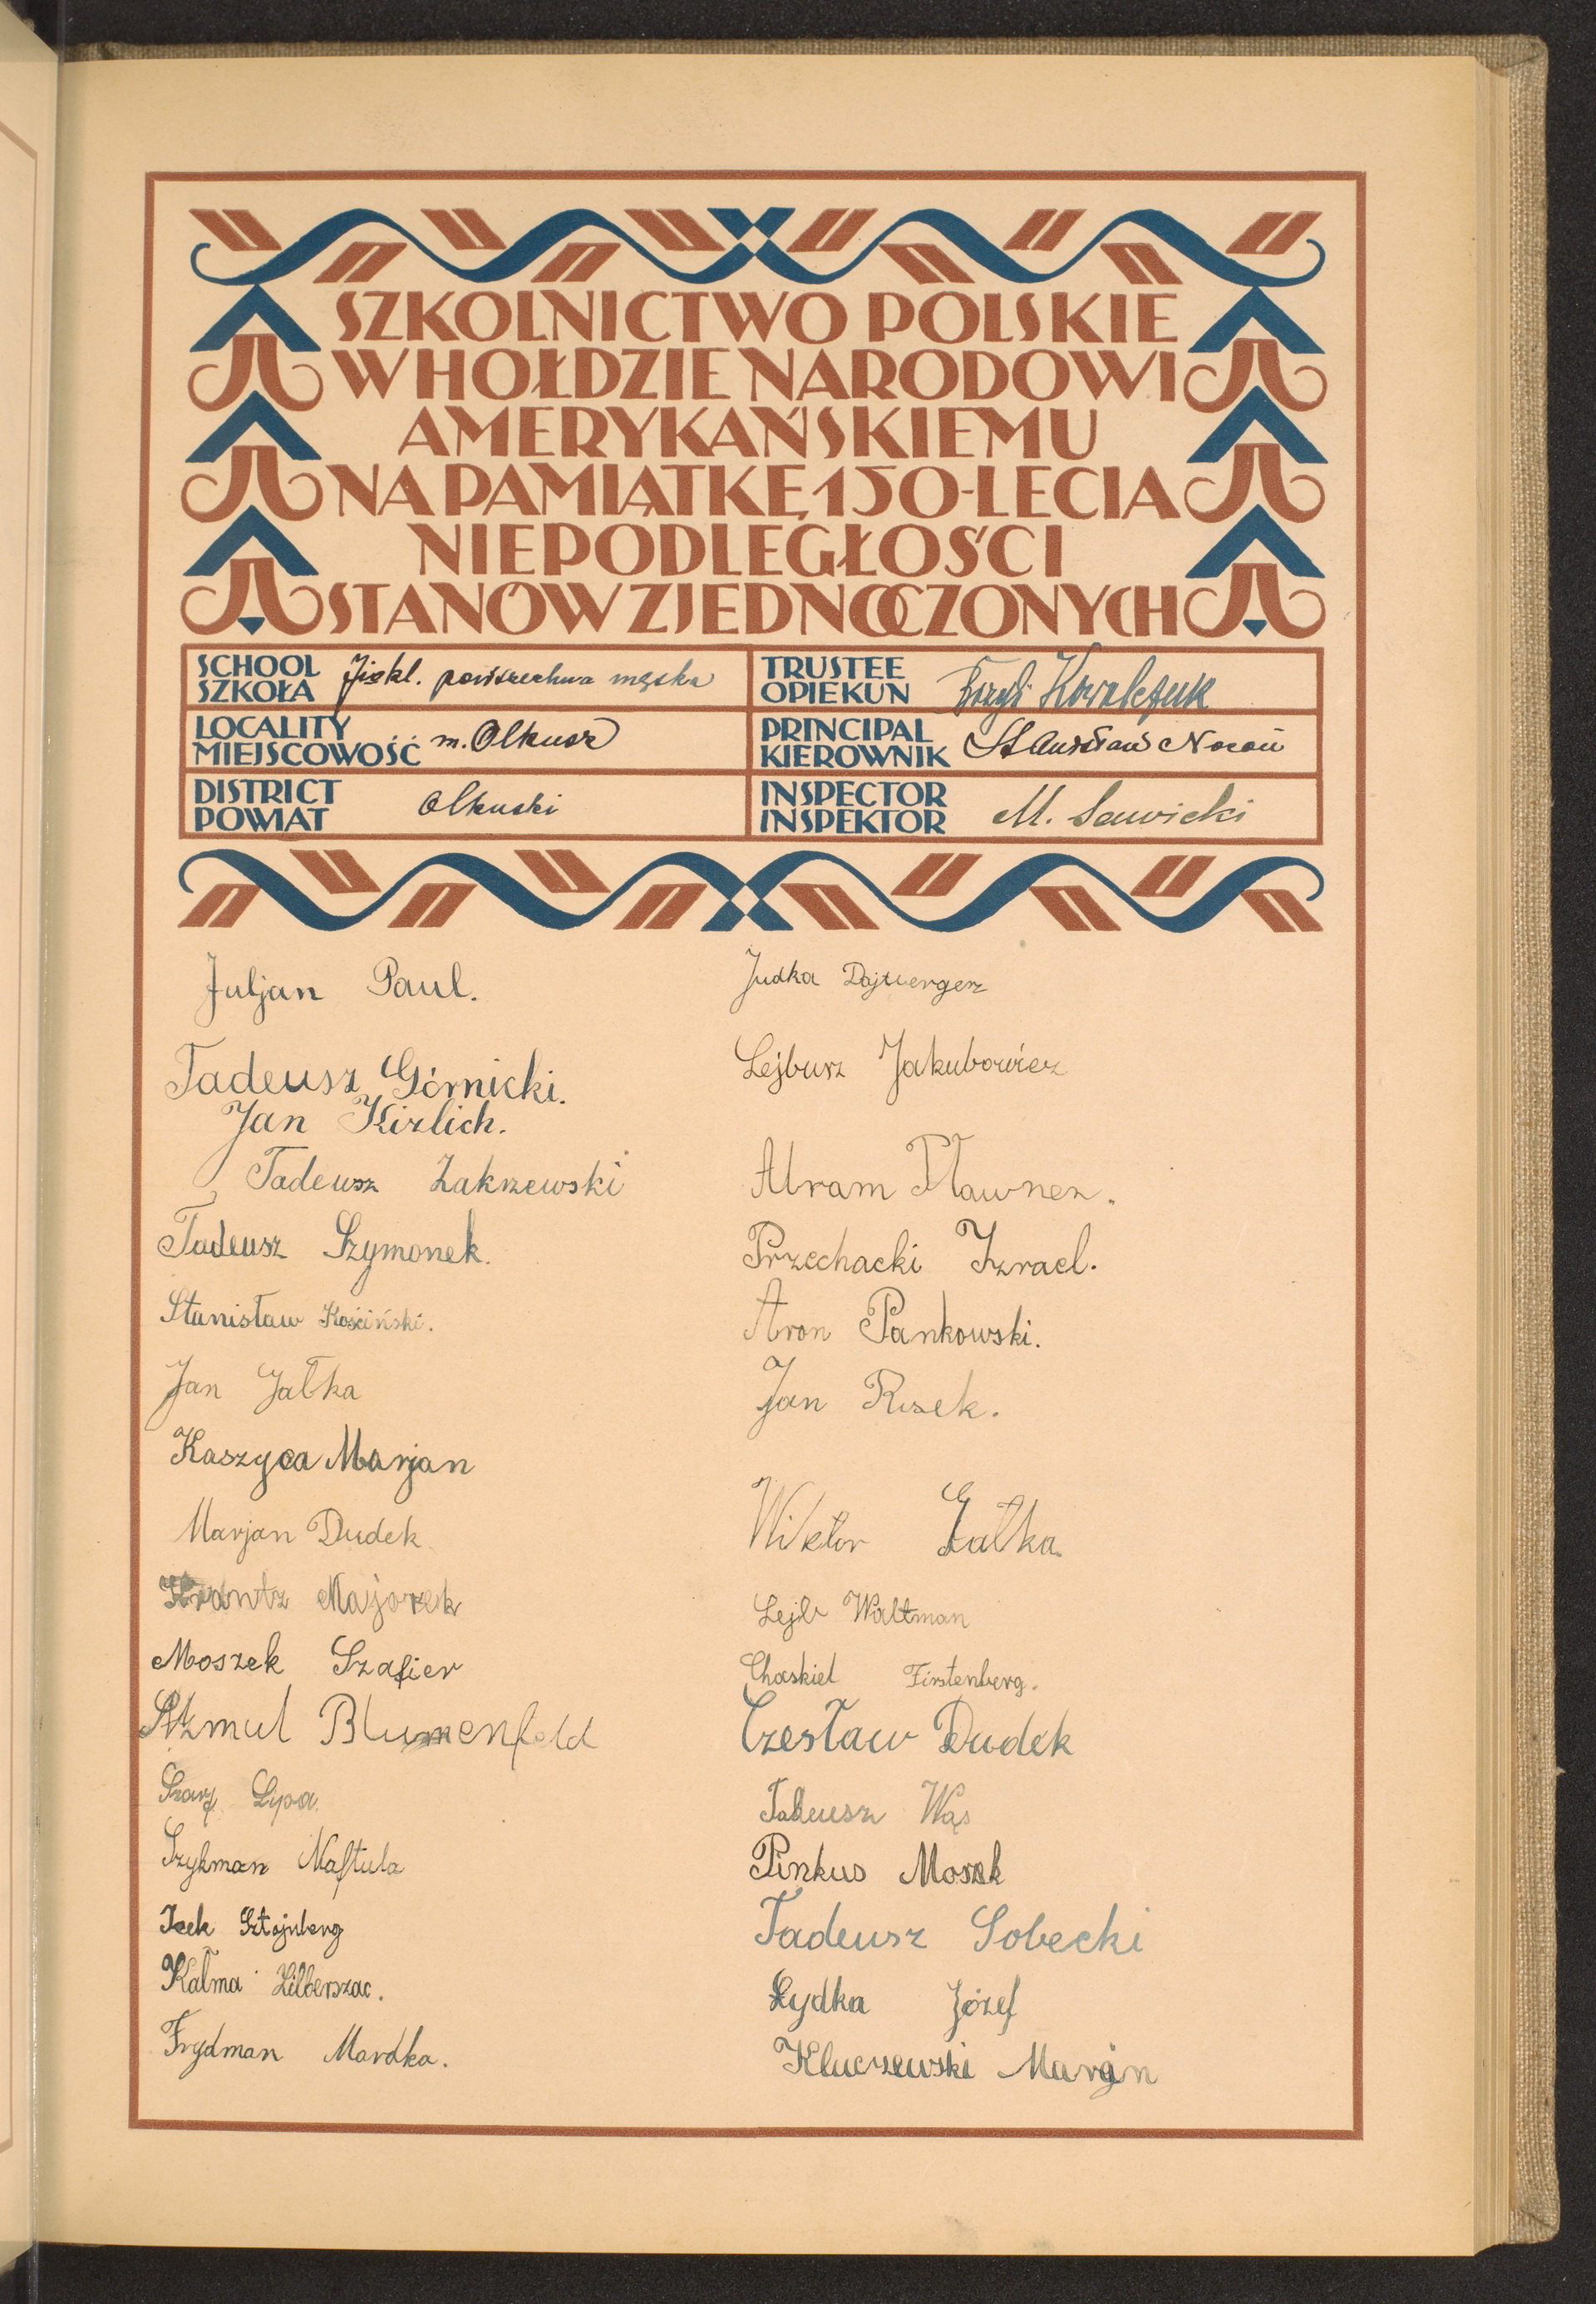 SZKOLNICTWO POLSKIE
W HOŁDZIE NARODOWI
AMERYKAŃSKIEMU
NA PAMIĄTKĘ 150-LECIA
NIEPODLEGŁOŚCI
STANÓW ZJEDNOCZONYCH
SCHOOL
SZKOŁA powszechna męska
TRUSTEE
OPIEKUN Kowalczuk
LOCALITY
MIEJSCOWOŚĆ m. Olkusz
PRINCIPAL
KIEROWNIK Stanisław Nocoń
DISTRICT
POWIAT Olkuski
INSPECTOR
INSPEKTOR M. Sawicki
Juljan Paul.
Tadeusz Górnicki.
Jan Kirlich.
Tadeusz Zakrzewski
Tadeusz Szymonek.
Stanisław Kościński.
Jan Jałka
Kaszyca Marjan
Marjan Dudek
Majorek
Moszek Szafier
Blumenfeld
Lipa
Szykman Naftula
Icek Sztajnberg
Kalma Zilberszac.
Frydman Mordka.
Judka
Lejbusz Jakubowicz
Abram Pławner.
Przechacki Izrael.
Aron Pankowski.
Jan Rusek.
Wiktor Gałka
Lejb Waltman
Chaskiel Firstenberg.
Czesław Dudek
Tadeusz Wąs
Pinkus Mosek
Tadeusz Sobecki
Łydka Józef
Kluczewski Marjn